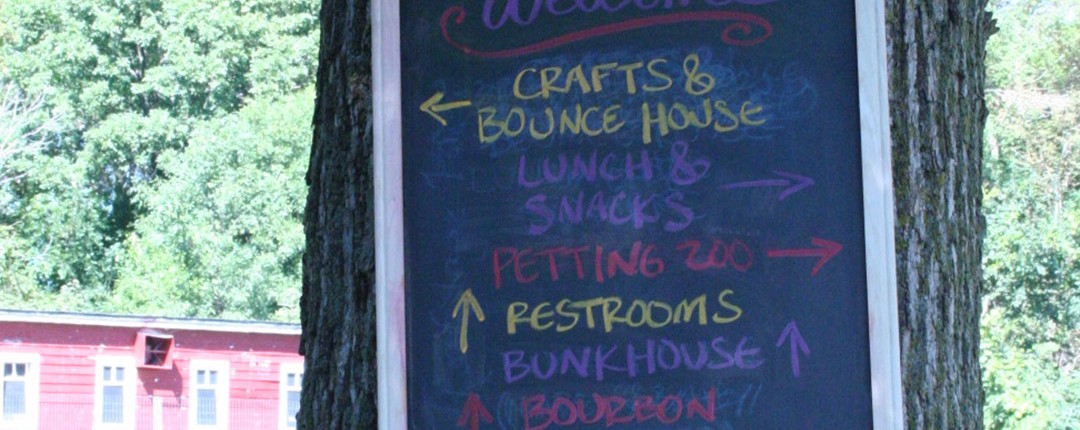 Welcome
CRAFTS &
← BOUNCE HOUSE
LUNCH &
SNACKS →
PETTING ZOO →
↑ RESTROOMS
BUNKHOUSE ↑
↑ BOURBON